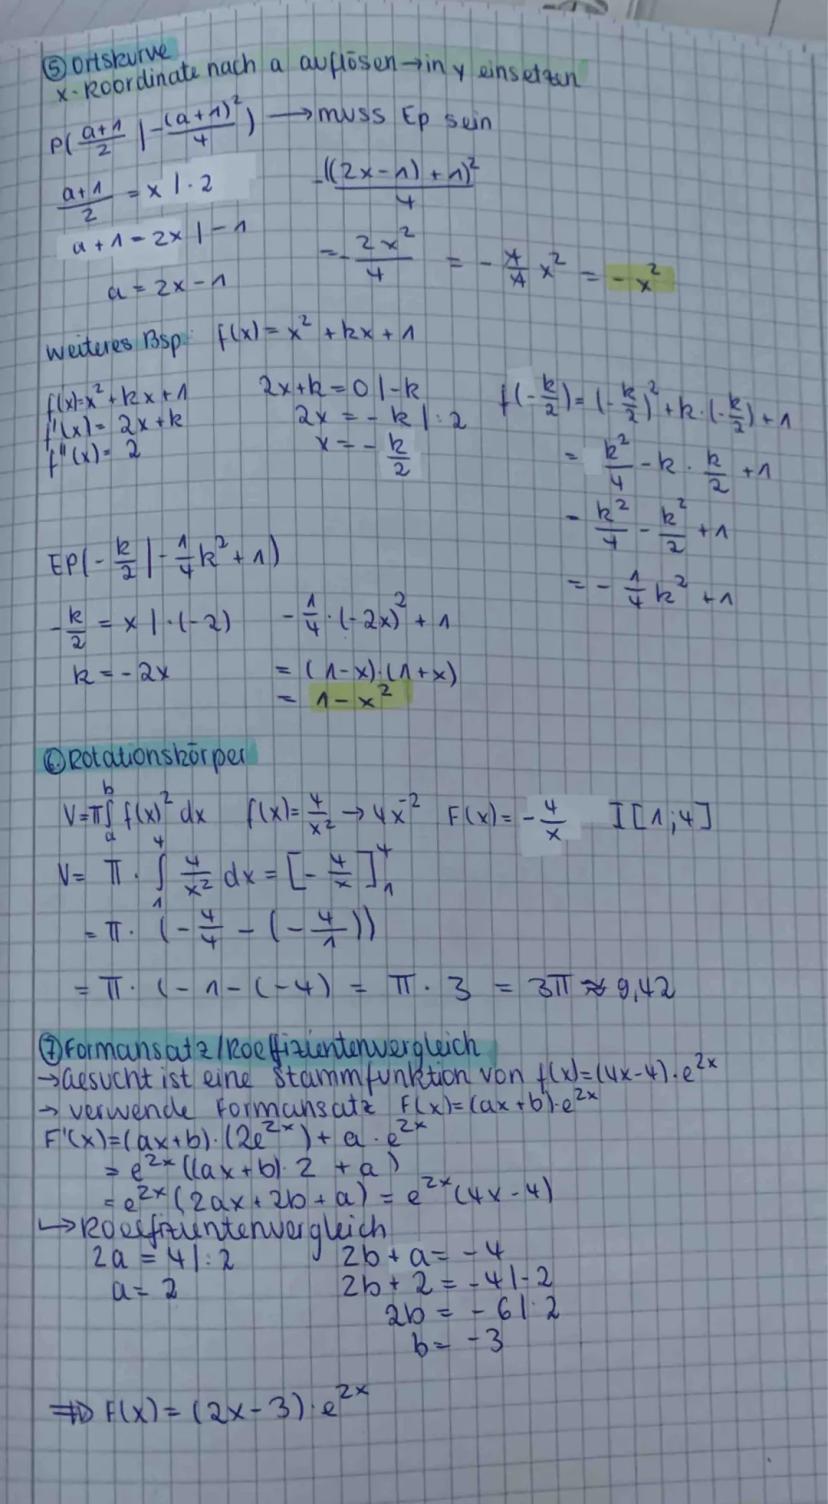 ⑤ Ortskurve
x-Koordinate nach a auflösen → in y einsetzen
P(\frac{a+1}{2} | -\frac{(a+1)^2}{4}) → muss Ep sein
\frac{a+1}{2} = x | · 2
a + 1 = 2x | - 1
a = 2x - 1
-\frac{((2x-1)+1)^2}{4}
= -\frac{2x^2}{4} = -\frac{4}{4} x^2 = -x^2
weiteres Bsp: f(x) = x² + kx + 1
f(x) = x² + kx + 1
f'(x) = 2x + k
f''(x) = 2
2x + k = 0 | - k
2x = - k | : 2
x = -\frac{k}{2}
f(-\frac{k}{2}) = (-\frac{k}{2})² + k · (-\frac{k}{2}) + 1
= \frac{k²}{4} - k · \frac{k}{2} + 1
= \frac{k²}{4} - \frac{k²}{2} + 1
= -\frac{1}{4} k² + 1
EP(-\frac{k}{2} | -\frac{1}{4} k² + 1)
-\frac{k}{2} = x | · (-2)
k = -2x
-\frac{1}{4} · (-2x)² + 1
= (1-x) · (1+x)
= 1 - x²
⑥ Rotationskörper
V = π \int_a^b f(x)² dx f(x) = \frac{4}{x²} → 4x^{-2} F(x) = -\frac{4}{x} I [1;4]
V = π · \int_1^4 \frac{4}{x²} dx = [-\frac{4}{x}]_1^4
= π · (-\frac{4}{4} - (-\frac{4}{1}))
= π · (-1 - (-4) = π · 3 = 3π ≈ 9,42
⑦ Formansatz / Koeffizientenvergleich
→ Gesucht ist eine Stammfunktion von f(x) = (4x-4) · e^{2x}
→ verwende Formansatz F(x) = (ax+b) · e^{2x}
F'(x) = (ax+b) · (2e^{2x}) + a · e^{2x}
= e^{2x} ((ax+b) · 2 + a)
= e^{2x} (2ax + 2b + a) = e^{2x} (4x - 4)
↳ Koeffizientenvergleich
2a = 4 | : 2
a = 2
2b + a = -4
2b + 2 = -4 | - 2
2b = -6 | : 2
b = -3
⇒ F(x) = (2x - 3) · e^{2x}